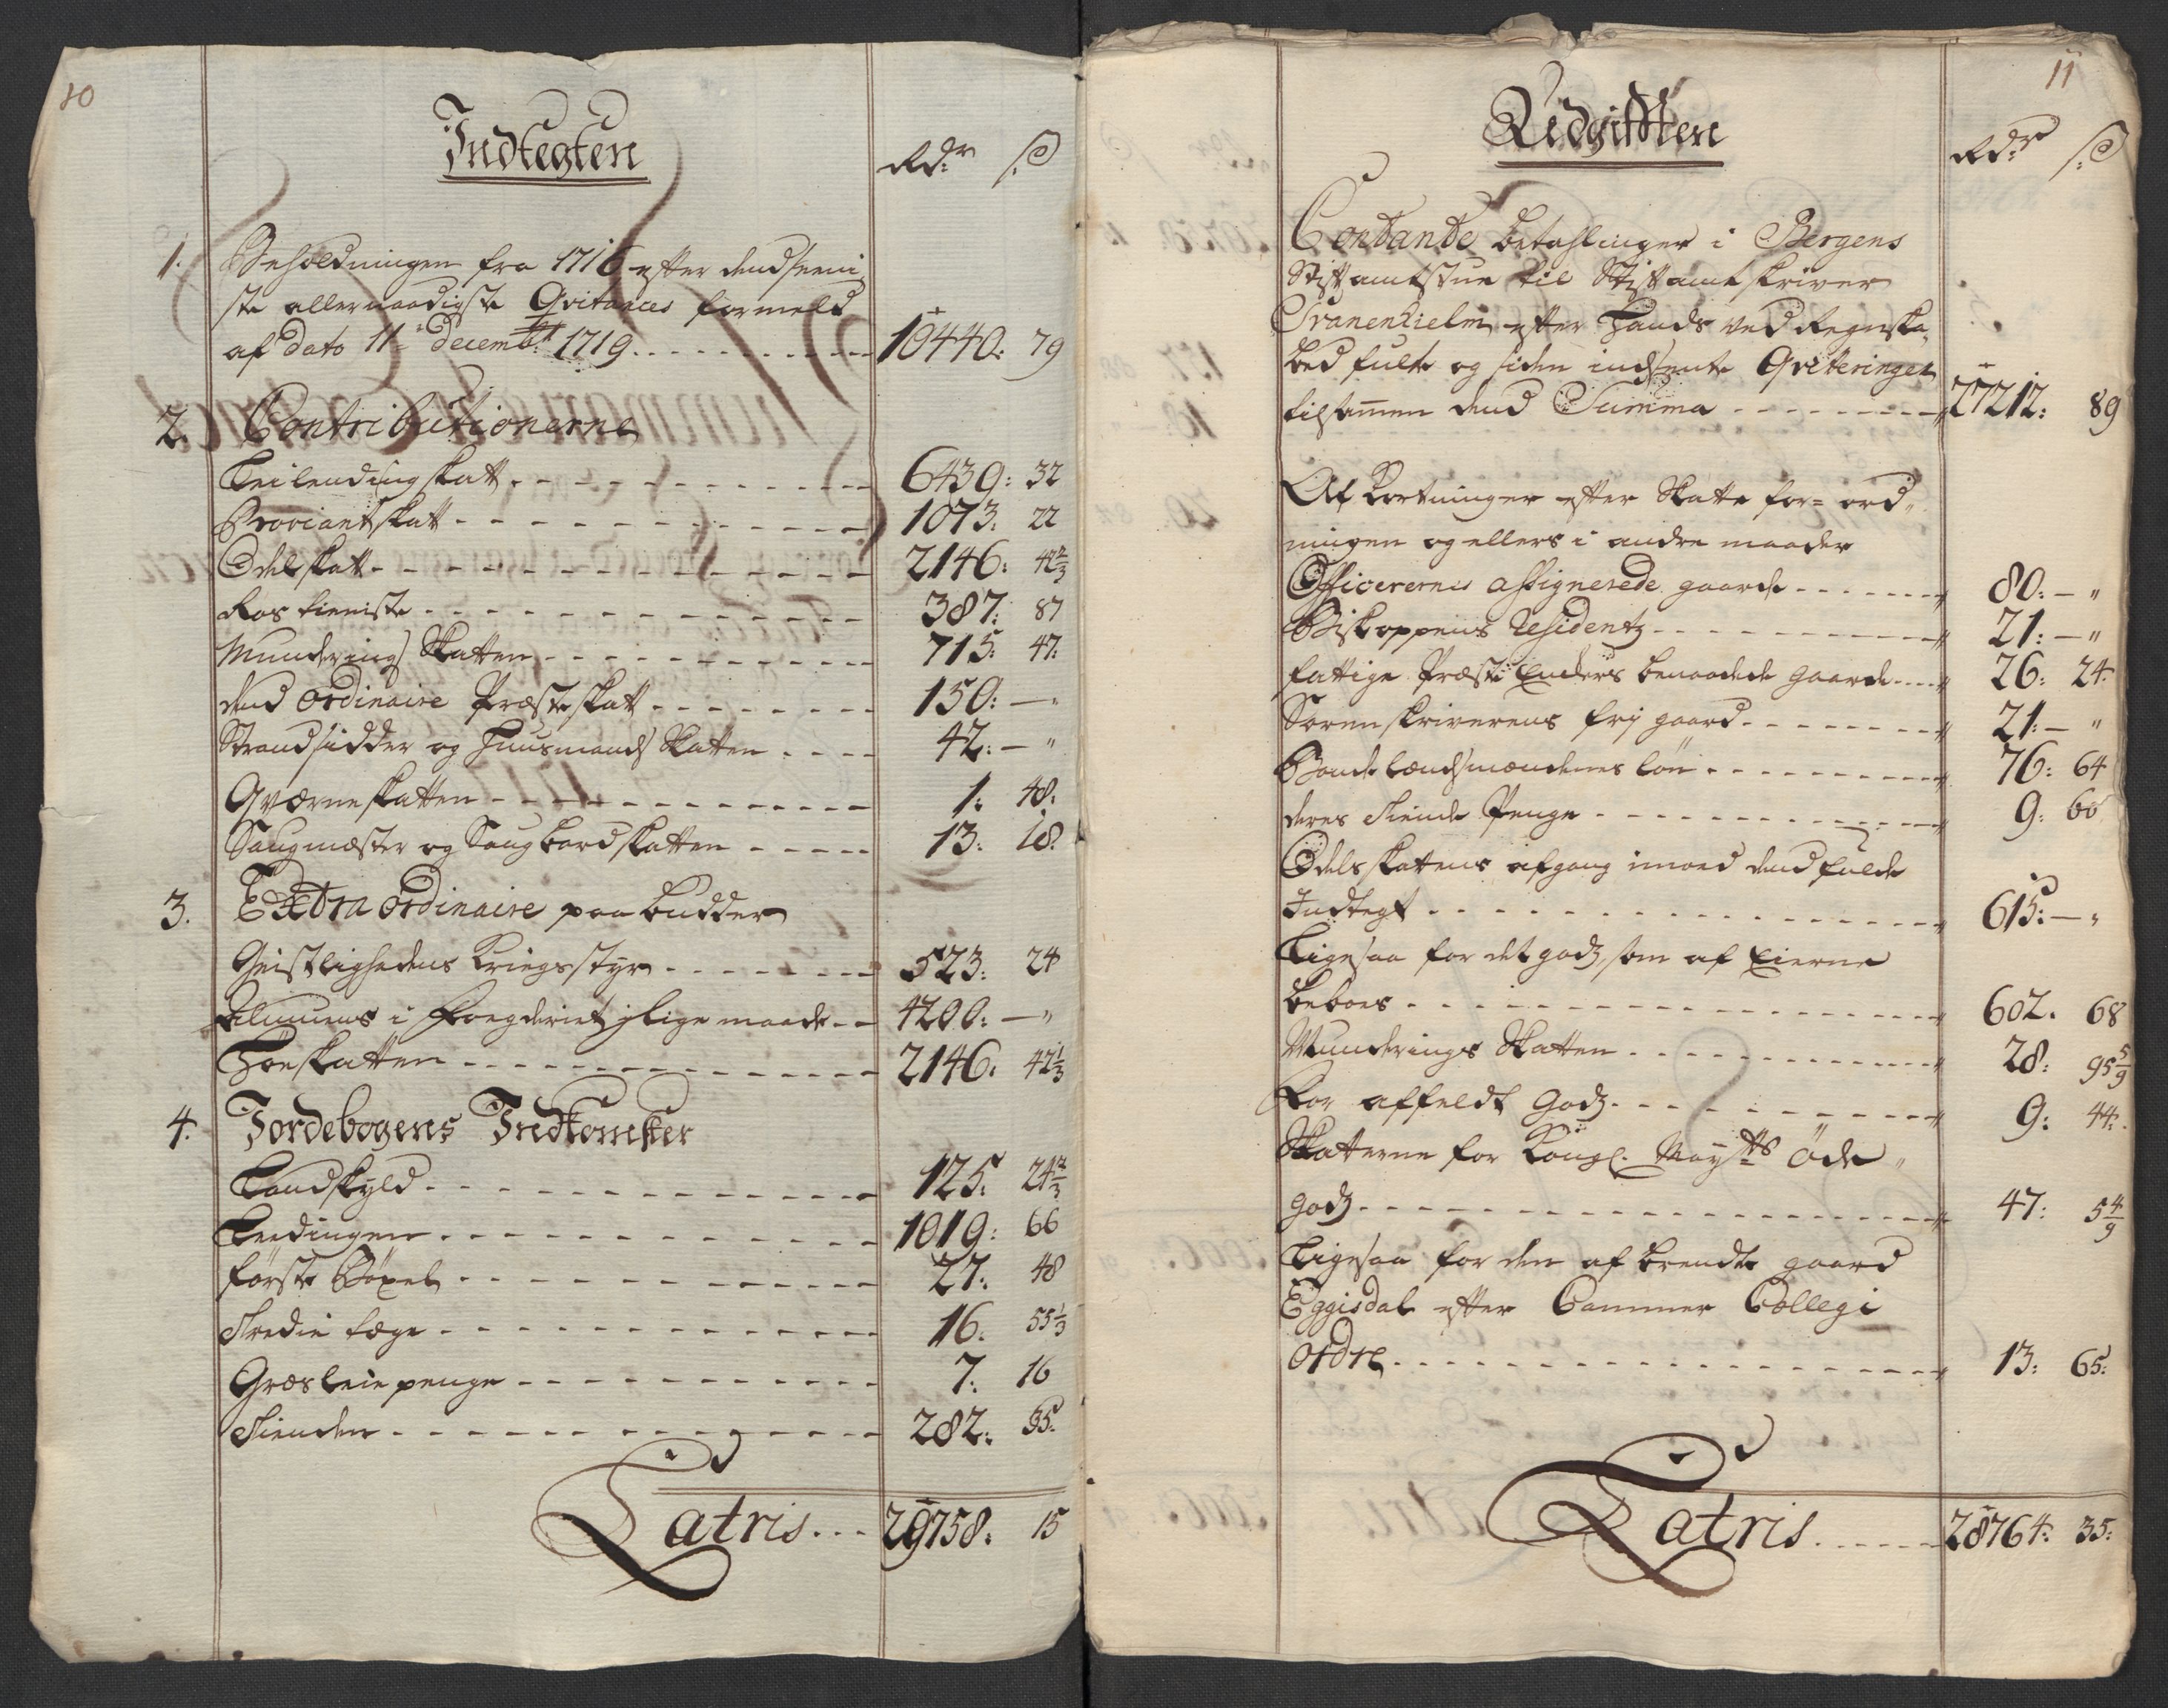 10
Indtegten
Rdr ß
1. Beholdningen fra 1716 efter dend seeni
ste allernaadigste Qvitances formeld
af dato 11te decembr 1719 10440: 79
2. Contributionerne
Leilendingskatt 6439: 32
Proviantskatt 1073: 22
Odelskatt 2146: 42 2/3
Rostieniste 387: 87
Munderings Skatten 715: 47:
dend ordinaire Præsteskatt 150: — "
Strandsidder og Huusmands Skatten 42: — "
Qværneskatten 1: 48:
Saugmester og Saugbordskatten 13: 18:
3. Extra ordinaire paabudder
Geistlighedens Kriegsstyr 523: 24
Almuens i Fogderiet j lige maade 4200: — "
Høeskatten 2146: 42 1/3
4. Jordebogens Indkomster
Landskyld 125: 24 2/3
Leedingen 1019: 66
første Böxel 27: 48
Tredie tage 16: 55 1/3
Græsleiepenge 7: 16
Tienden 282: 35:
Latris 29758: 15
11
Udgifften
Rdr ß
Contante betahlinger i Bergens
Stiftamtstue til Stiftamtskriver
Tranenhielm efter Hands ved Regnska„
bed fulte og siden indsente Qviteringer
tilsammen dend Summa 27212: 89
Afkortninger efter Skatte for= ord„
ningen og ellers i andre maader
Officerernis assignerede gaarde 80: — "
Biskoppens Residentz 21: — "
fattige Præste Enders benaadede gaarde 26: 24:
Sorenskriverens frij gaard 21: — "
Bondelændsmændenes lön 76: 64
deres Tiende Penge 9: 60
Odelsskattens afgang imoed dend fulde
Indtegt 615: — "
Ligesaa for det godz, som af Eierne
beboes 602. 68
Munderings Skatten 28: 95 5/9
For affeldt Godz 9: 44:
Skatterne for Kongl. Mayttts Öde„
godz 47: 5 4/9
Ligesaa for den afbrendte gaard
Eggisdal efter Cammer Collegi
Ordre 13: 65:
Latris 28764: 35: